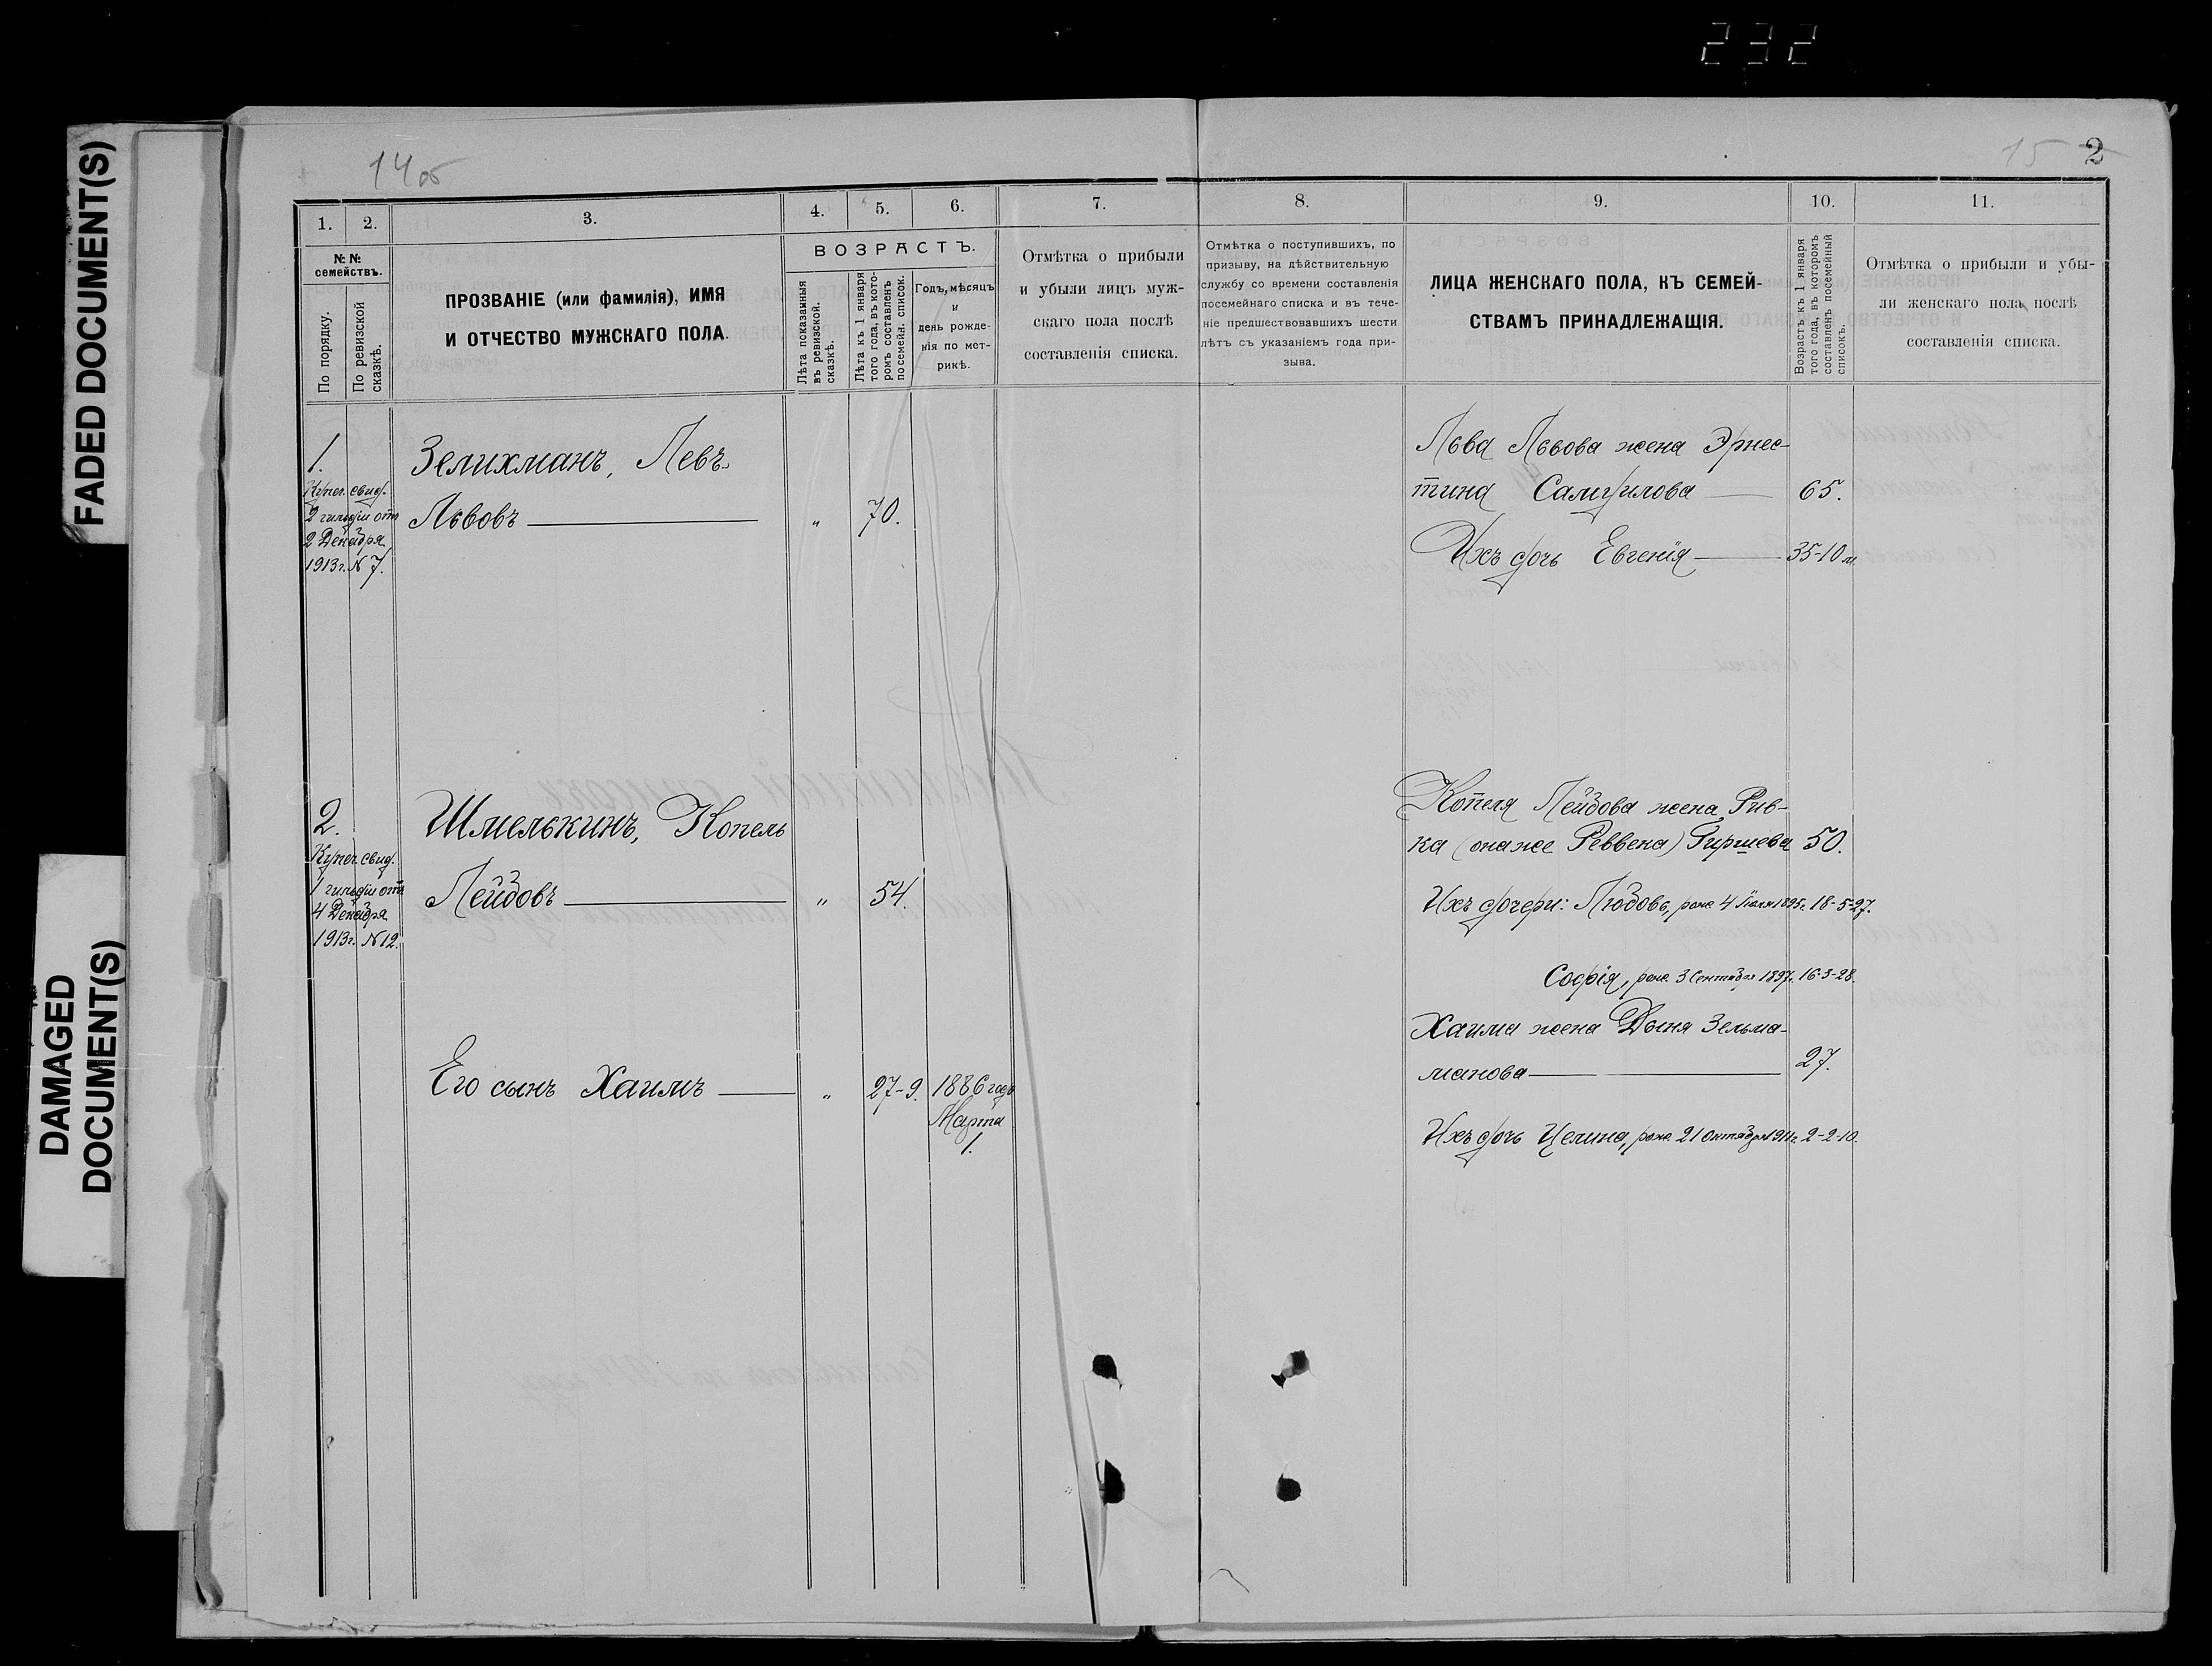 232
FADED DOCUMENT(S)
DAMAGED
DOCUMENT(S)
14об
15 2
1.
2.
3.
4.
5.
6.
7.
8.
9.
10.
11.
№ №
семействъ.
По порядку.
По ревизской
сказкѣ.
ПРОЗВАНІЕ (или фамилія), ИМЯ
И ОТЧЕСТВО МУЖСКАГО ПОЛА.
ВОЗРАСТЪ.
Лѣта показанныя
въ ревизской.
сказкѣ.
Лѣта къ 1 января
того года, въ кото-
ромъ составленъ
посемейн. список.
Годъ, мѣсяцъ
и
день рожде-
нія по мет-
рикѣ.
Отмѣтка о прибыли
и убыли лицъ муж-
скаго пола послѣ
составленія списка.
Отмѣтка о поступившихъ, по
призыву, на дѣйствительную
службу со времени составленія
посемейнаго списка и въ тече-
ніе предшествовавшихъ шести
лѣтъ съ указаніемъ года при-
зыва.
ЛИЦА ЖЕНСКАГО ПОЛА, КЪ СЕМЕЙ-
СТВАМЪ ПРИНАДЛЕЖАЩІЯ.
Возрастъ къ 1 января
того года, въ которомъ
составленъ посемейный
списокъ.
Отмѣтка о прибыли и убы-
ли женскаго пола послѣ
составленія списка.
1.
Купеч. свид.
2 гильдіи отъ
2 Декабря
1913г. № 7.
Зелихманъ, Левъ
Львовъ „ 70.
Льва Львова жена Эрнес-
тина Самуилова 65.
Ихъ дочь Евгенія 35-10 м.
2.
Купеч. свид.
1 гильдіи отъ
4 Декабря
1913г. № 12.
Шмелькинъ, Копель
Лейбовъ „ 54.
Его сынъ Хаимъ „ 27-9. 1886 года
Марта
1.
Копеля Лейбова жена Рив-
ка (она же Реввека) Гиршева 50.
Ихъ дочери: Любовь, рожд. 4 Іюля 1895г. 18-5-27.
Софія, рожд. 3 Сентября 1897г. 16-3-28.
Хаима жена Дыня Зельма-
манова 27.
Ихъ дочь Целина, рожд. 21 Октября 1911г. 2-2-10.